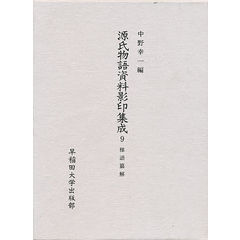 中野幸一編
源氏物語資料影印集成 9
早稲田大学出版部